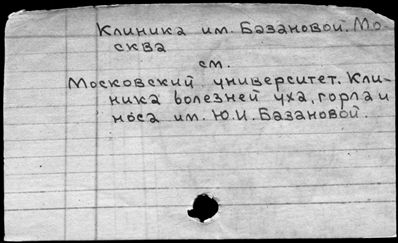 Клиника им. Базановой. Мо-
сква
см.
Московский университет. Кли-
ника болезней уха, горла и
носа им. Ю.И. Базановой.